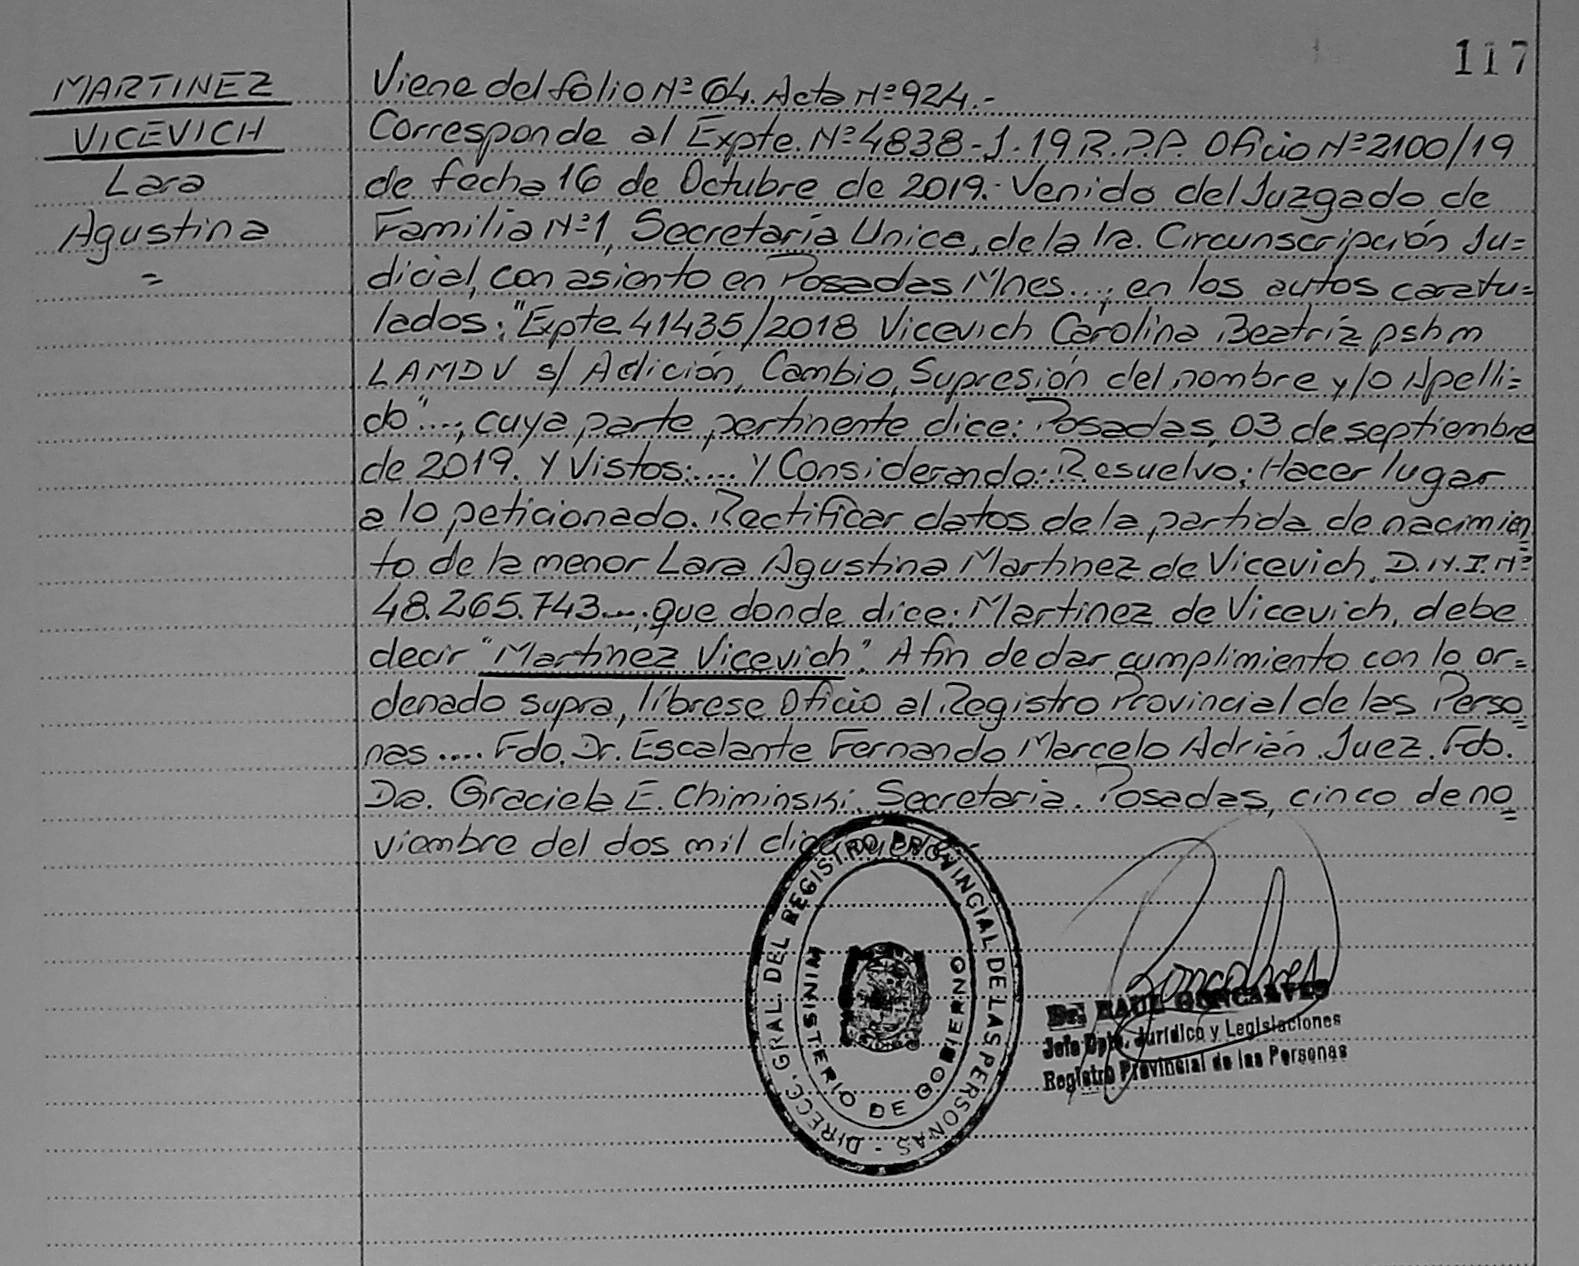 117
MARTINEZ
VICEVICH
Lara
Agustina
=
Viene del folio Nº 64. Acta Nº 924.-
Corresponde al Expte. Nº 4838-J-19 R.P.P. Oficio Nº 2100/19
de fecha 16 de Octubre de 2019.- Venido del Juzgado de
Familia Nº 1, Secretaría Unica, de la 1ra. Circunscripción Ju=
dicial, con asiento en Posadas Mnes...; en los autos caratu=
lados: "Expte 41435/2018 Vicevich Carolina Beatríz pshm
LAMDV s/ Adición, Cambio, Supresión del nombre y/o Apelli=
do"....; cuya parte pertinente dice: Posadas, 03 de septiembre
de 2019. Y Vistos:.... Y Considerando: Resuelvo: Hacer lugar
a lo peticionado. Rectificar datos de la partida de nacimien=
to de la menor Lara Agustina Martinez de Vicevich, D.N.I. Nº
48.265.743...; que donde dice: Martinez de Vicevich, debe
decir "Martinez Vicevich". A fin de dar cumplimiento con lo or=
denado supra, líbrese Oficio al Registro Provincial de las Perso=
nas.... Fdo. Dr. Escalante Fernando Marcelo Adrián. Juez. Fdo.
Dra. Graciela E. Chiminski. Secretaria. Posadas, cinco de no=
viembre del dos mil diecinueve.-
DIRECC. GRAL. DEL REGISTRO PROVINCIAL DE LAS PERSONAS -
MINISTERIO DE GOBIERNO
Goncalves
Dr. RAUL GONCALVES
Jefe Dpto. Jurídico y Legislaciones
Registro Provincial de las Personas